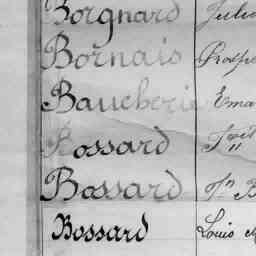 Borgnard Juli
Bornais Prospe
Baucherie Ema
Bossard
Bossard Jn B
Bossard Louis M